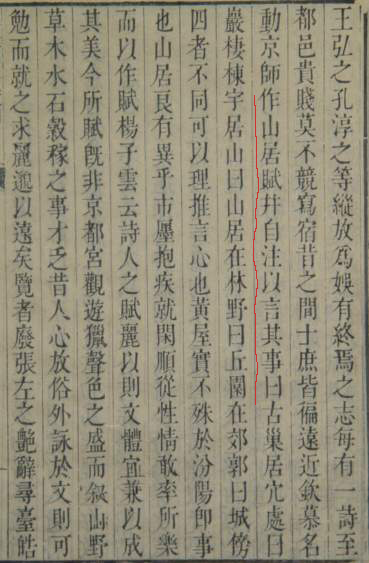 王弘之孔淳之等縱放爲娛有終焉之志每有一詩至
都邑貴賤莫不競寫宿昔之間士庶皆徧遠近欽慕名
動京師作山居賦并自注以言其事曰古巢居穴處曰
巖棲棟宇居山曰山居在林野曰丘園在郊郭曰城傍
四者不同可以理推言心也黃屋實不殊於汾陽卽事
也山居良有異乎市廛抱疾就閑順從性情敢率所樂
而以作賦楊子雲云詩人之賦麗以則文體宜兼以成
其美今所賦旣非京都宮觀遊獵聲色之盛而叙山野
草木水石穀稼之事才乏昔人心放俗外詠於文則可
勉而就之求麗邈以遠矣覽者廢張左之艶辭尋臺皓